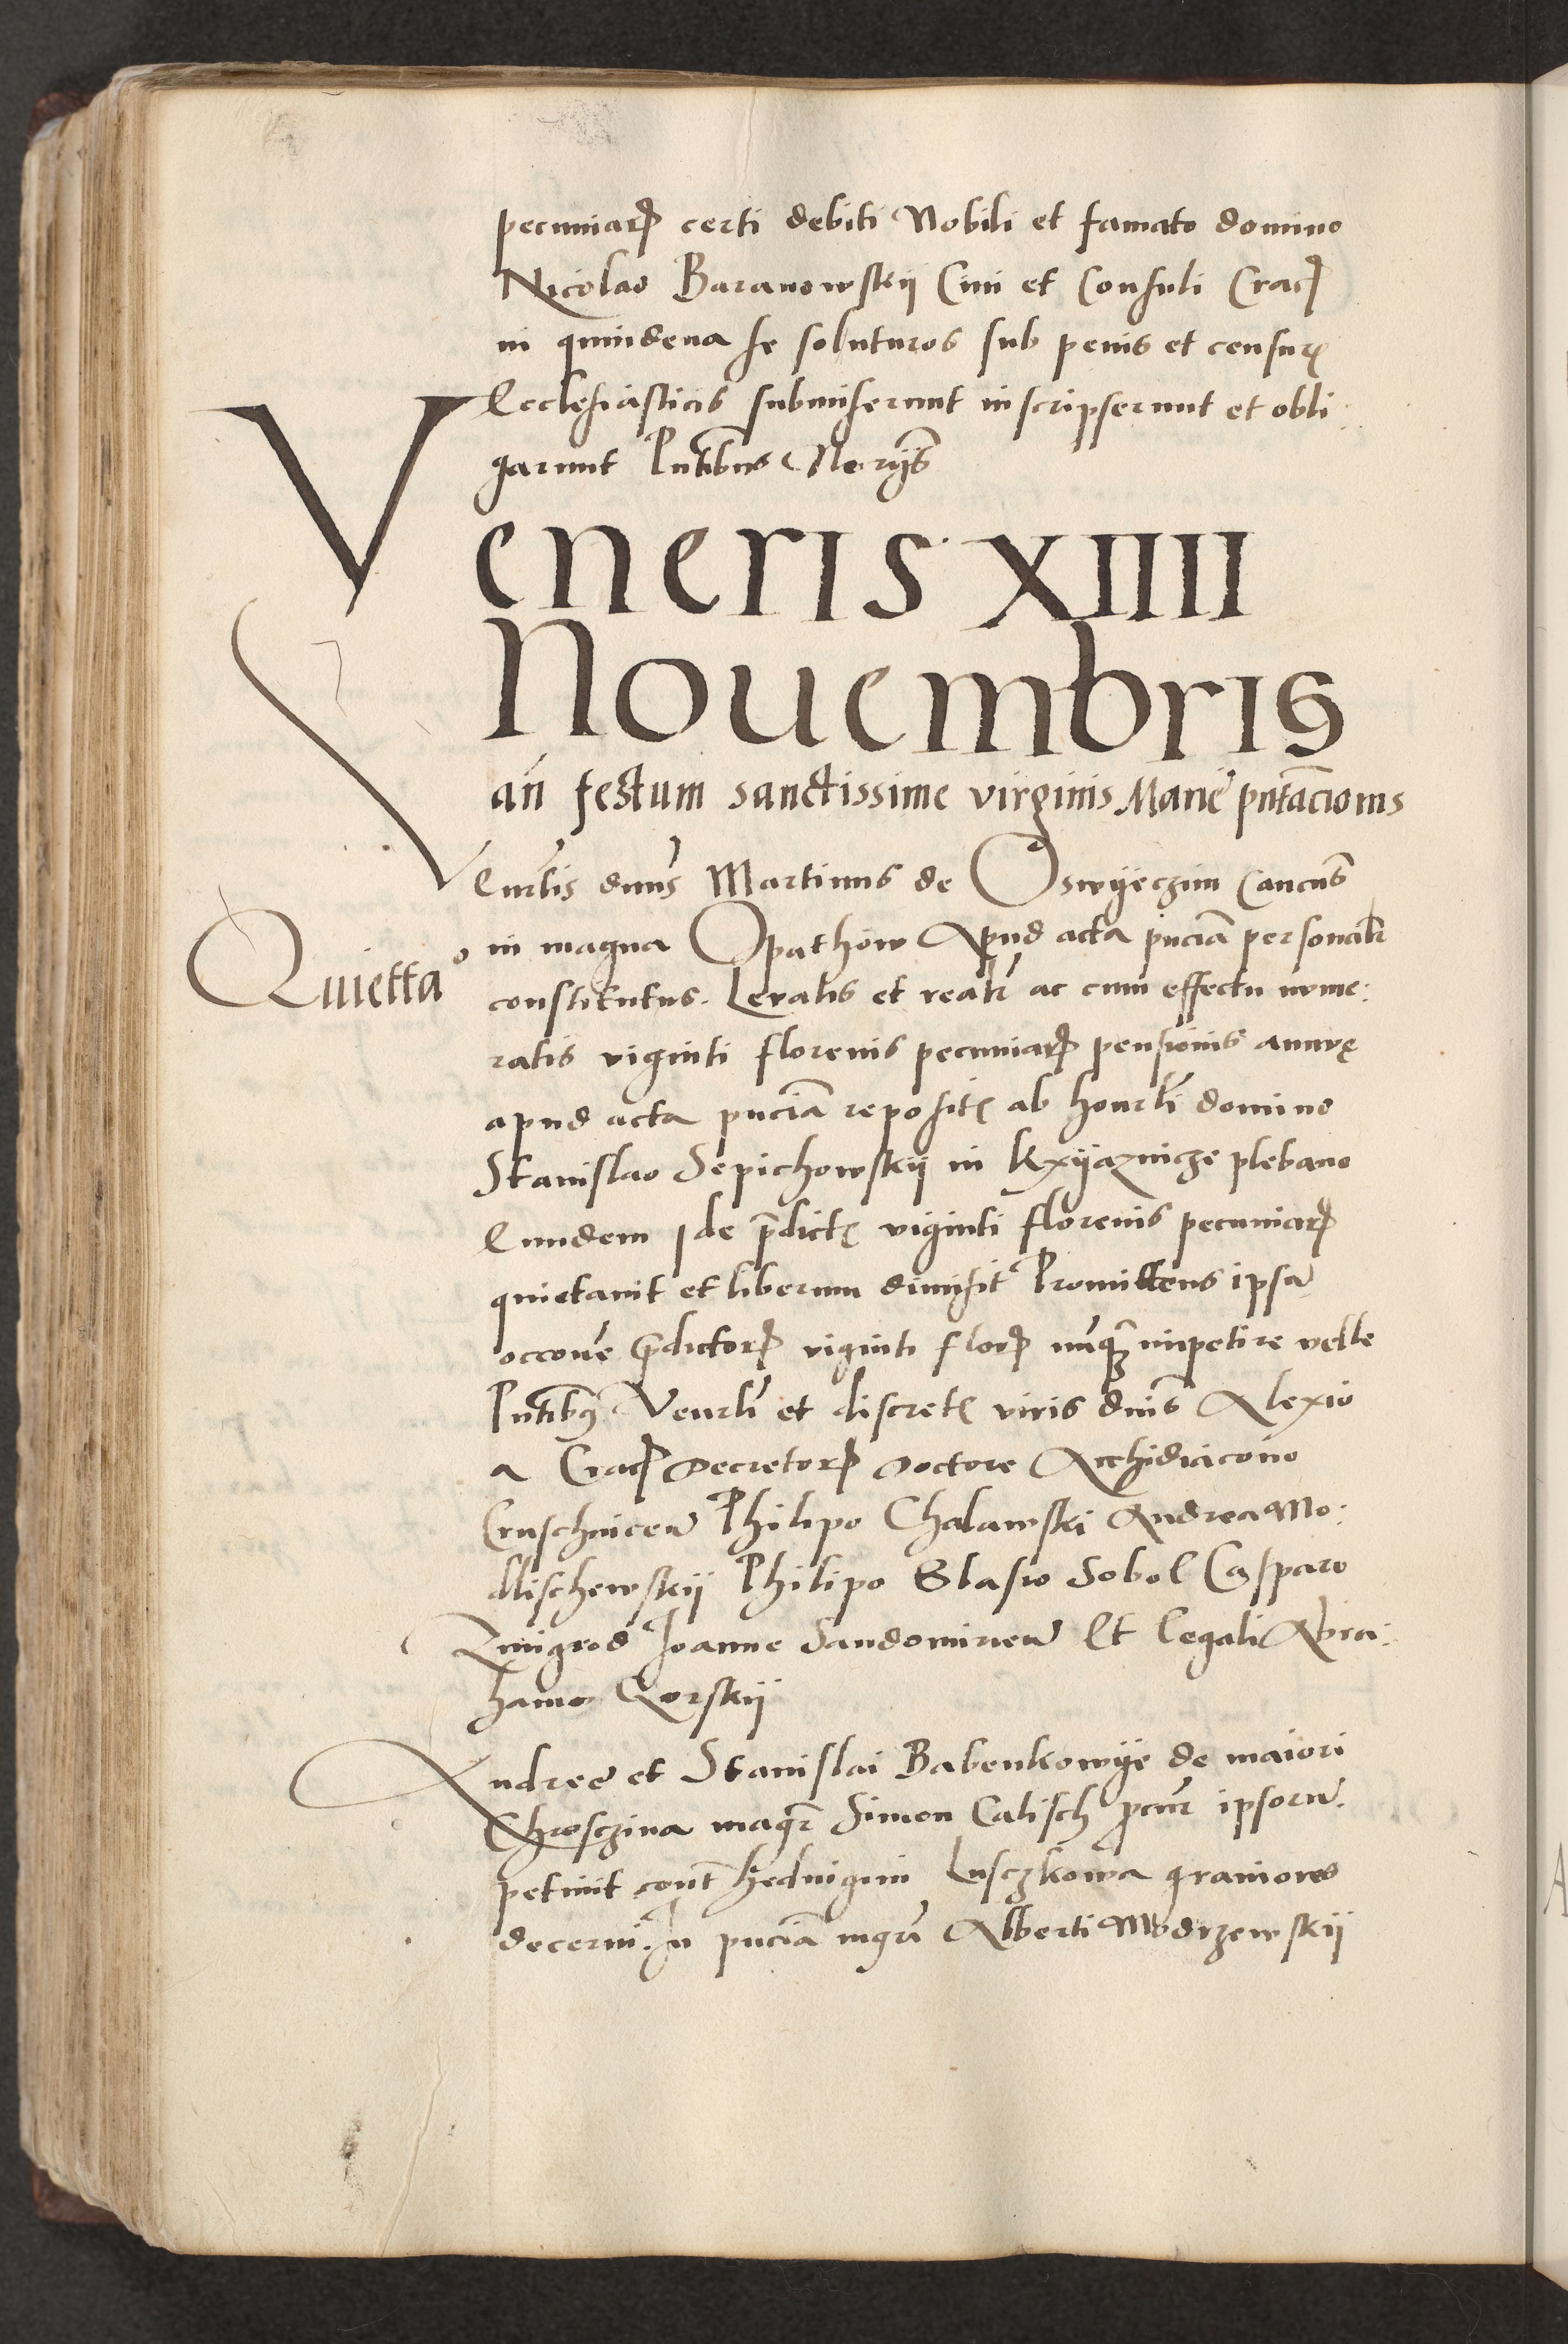 pecuniarꝝ certi debiti Nobili et famato domino
Nicolao Baranowskij Ciui et Consuli Cracꝝ
in quindena se soluturos sub penis et censurꝭ
Ecclesiasticis submiserunt inscripserunt et obli:
garunt Pntibus Norijs
Veneris XIIII
Nouembris
an festum sanctissime virginis Marie pntacionis
Venrlis dnus Martinus de Oswyeczim Cancus
Quietta
in magna Opathow Apud acta pnciã personalr
constitutus. Leuatis et realr ac cum effectu nume:
ratis viginti florenis pecuniarꝝ pensionis annuę
apud acta pnciã repositꝭ ab honrli domino
Stanislao Sepichowskij in Kxyaznicze plebano
Eundem de pdictꝭ viginti florenis pecuniarꝝ
quietauit et liberum dimisit Promittens ipsũ
occone pdictorꝝ viginti florꝝ nunqꝫ impetire velle
Pntibꝰ Venrli et discretꝭ viris dnis Alexio
a Cracꝝ Decretorꝝ Doctore Archidiacono
Cruschuiceñ Philipo Chalawski Andrea Mo:
dlischewskij Philipo Blasio Sobol Casparo
Zmigrod Joanne Sandomirieñ Et Legali Abra:
hamo Gorskij
Andree et Stanislai Babenkowye de maiori
Chrosczina magr Simon Calisch pcur ipsorũ.
petiuit cont heduigim Lusczkowa grauiores
decerni. In pnciã mgri Alberti Modrzewskij